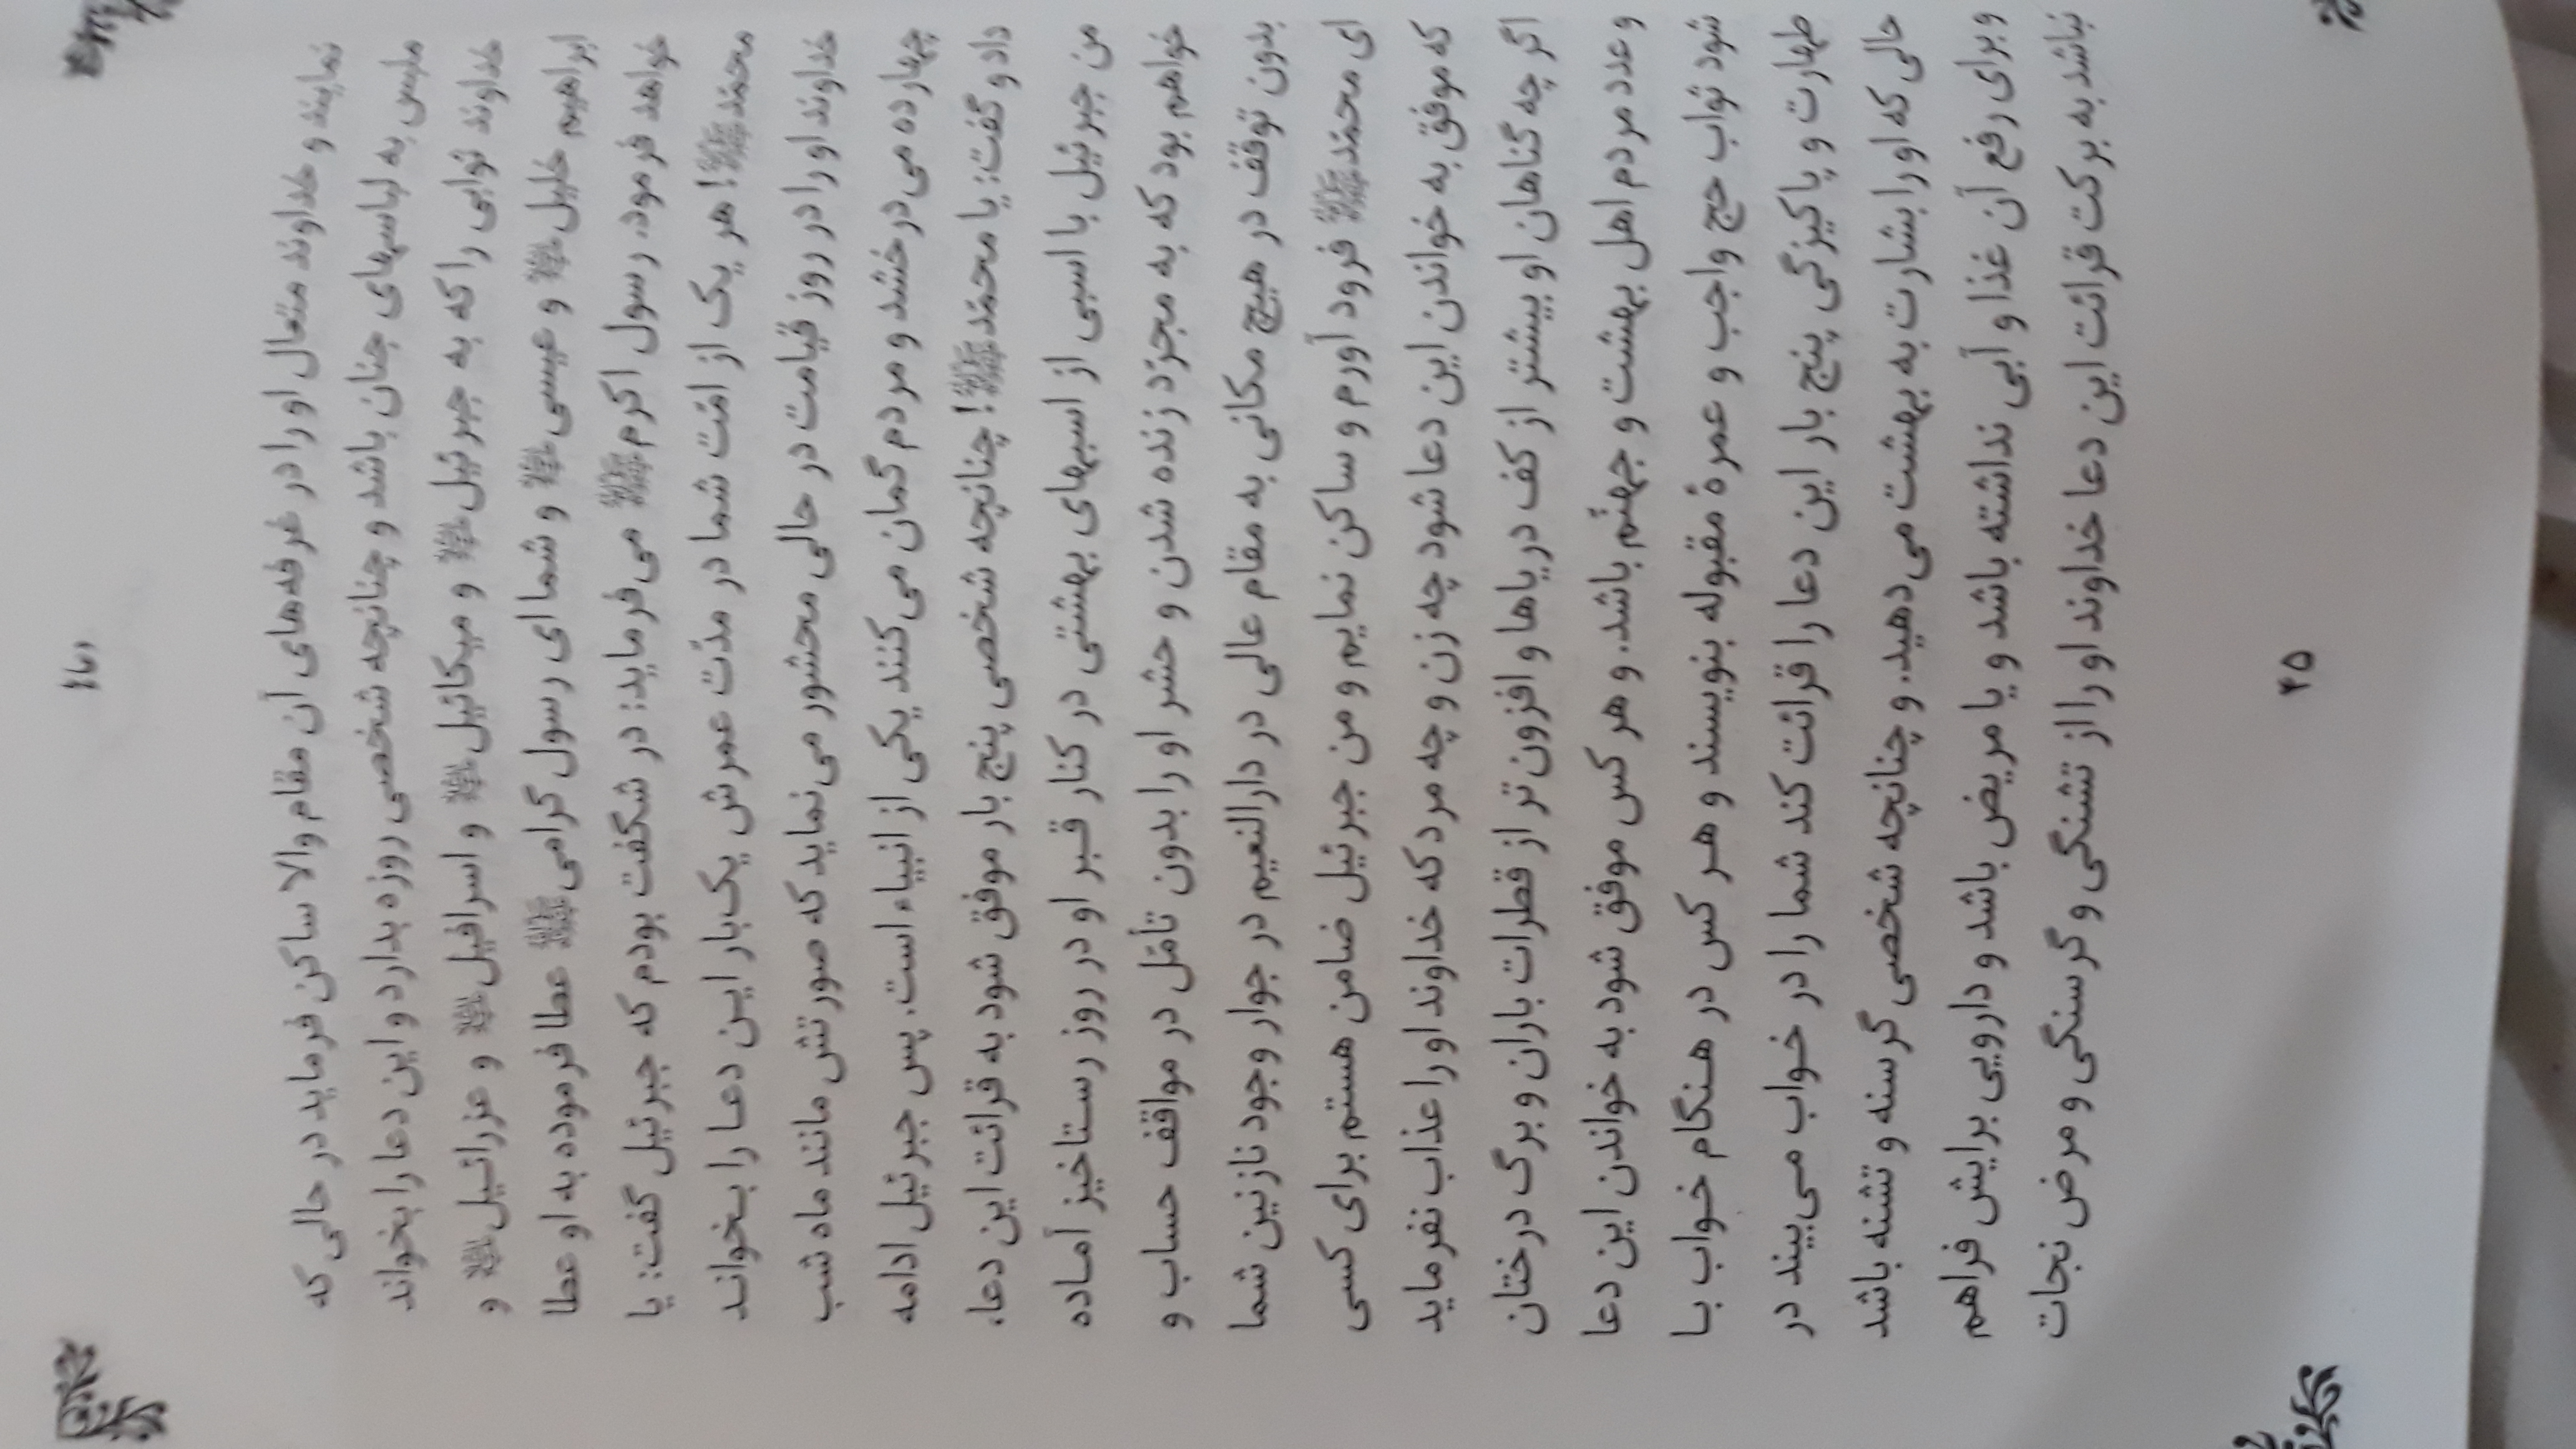 دعا
نمایند و خداوند متعال او را در غرفه‌های آن مقام والا ساکن فرماید در حالی که
ملبس به لباسهای جنان باشد و چنانچه شخصی روزه بدارد و این دعا را بخواند
خداوند ثوابی را که به جبرئیل و میکائیل و اسرافیل و عزرائیل و
ابراهیم خلیل و عیسی و شما ای رسول گرامی ﷺ عطا فرموده به او عطا
خواهد فرمود، رسول اکرم ﷺ می‌فرماید: در شگفت بودم که جبرئیل گفت: یا
محمّد ﷺ! هر یک از امّت شما در مدّت عمرش یک‌بار این دعا را بخواند
خداوند او را در روز قیامت در حالی محشور می‌نماید که صورتش مانند ماه شب
چهارده می‌درخشد و مردم گمان می‌کنند یکی از انبیاء است. پس جبرئیل ادامه
داد و گفت: یا محمّد ﷺ! چنانچه شخصی پنج بار موفق شود به قرائت این دعا،
من جبرئیل با اسبی از اسبهای بهشتی در کنار قبر او در روز رستاخیز آماده
خواهم بود که به مجرّد زنده شدن و حشر او را بدون تأمّل در مواقف حساب و
بدون توقّف در هیچ مکانی به مقام عالی در دارالنعیم در جوار وجود نازنین شما
ای محمّد ﷺ فرود آورم و ساکن نمایم و من جبرئیل ضامن هستم برای کسی
که موفق به خواندن این دعا شود چه زن و چه مرد که خداوند او را عذاب نفرماید
اگر چه گناهان او بیشتر از کف دریاها و افزون‌تر از قطرات باران و برگ درختان
و عدد مردم اهل بهشت و جهنّم باشد. و هر کس موفق شود به خواندن این دعا
شود ثواب حج واجب و عمرۀ مقبوله بنویسند و هر کس در هنگام خواب با
طهارت و پاکیزگی پنج بار این دعا را قرائت کند شما را در خواب می‌بیند در
حالی که او را بشارت به بهشت می‌دهید. و چنانچه شخصی گرسنه و تشنه باشد
و برای رفع آن غذا و آبی نداشته باشد و یا مریض باشد و دارویی برایش فراهم
نباشد به برکت قرائت این دعا خداوند او را از تشنگی و گرسنگی و مرض نجات
۴۵